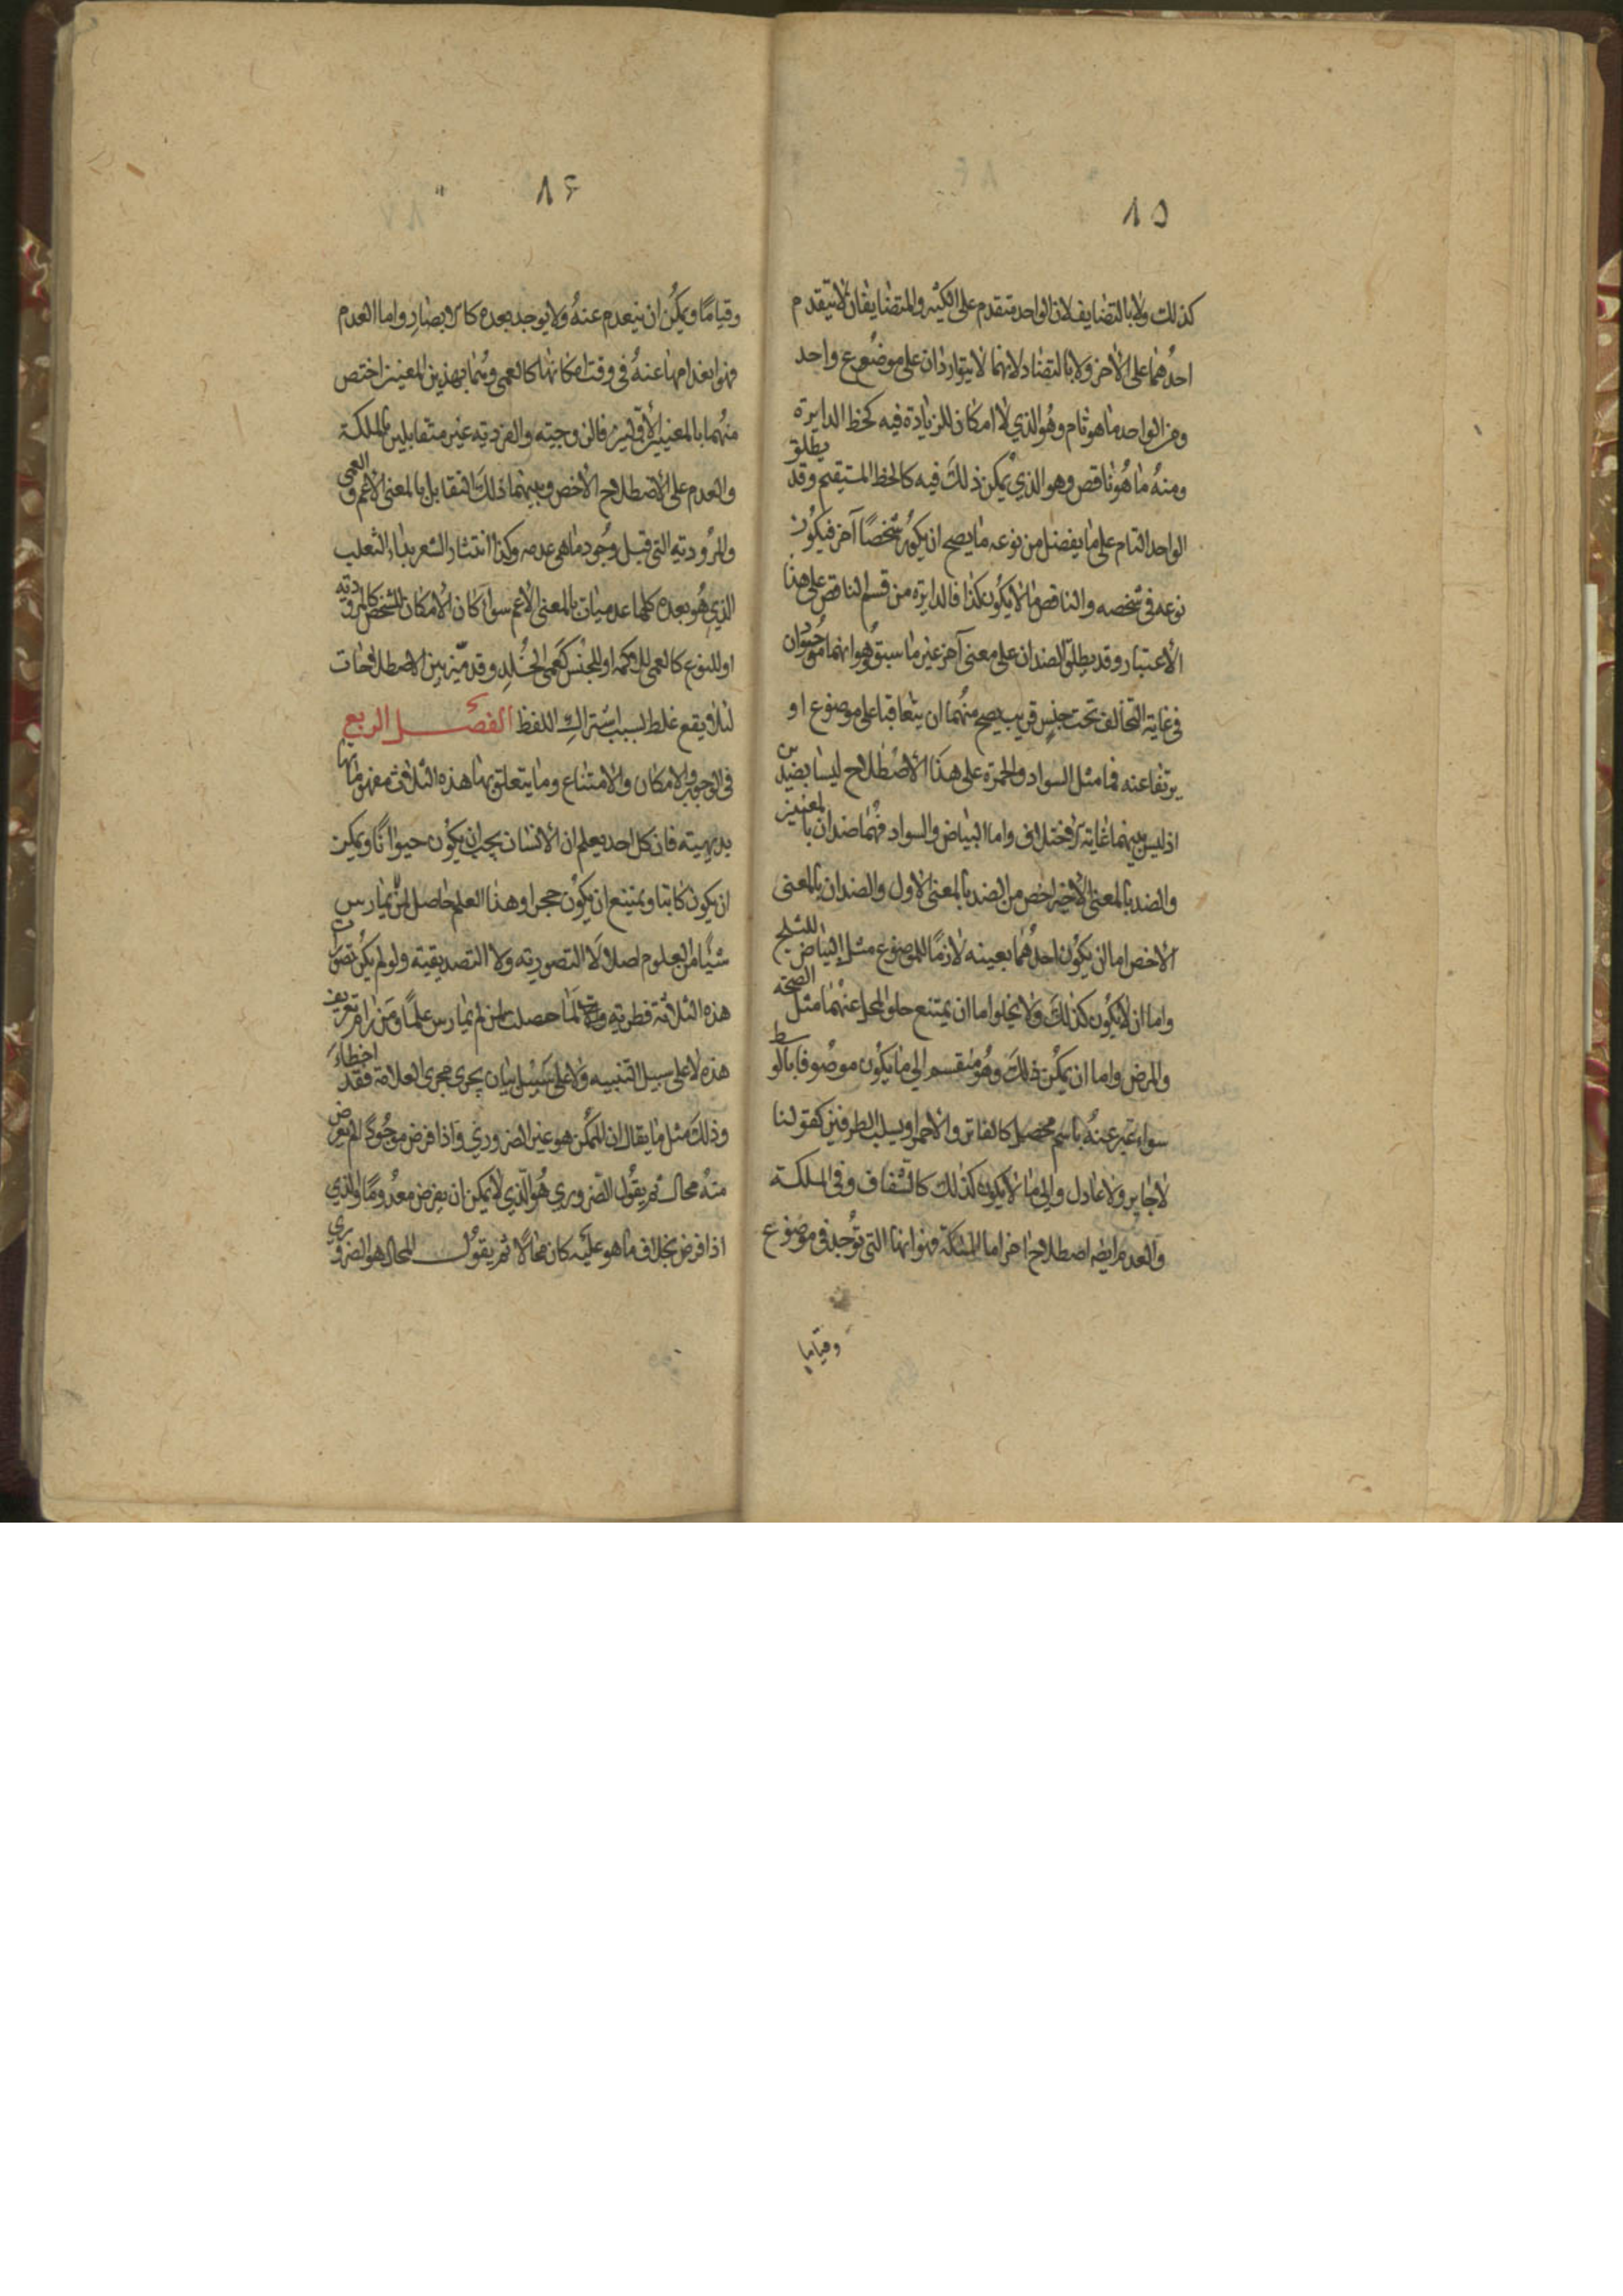 ١٥
كذلك ولا بالتضايف لان الواحد متقدم على الكثير والمتضايفان لا يتقدم
احدهما على الاخر ولا بالتضاد لانهما لا يتواردان على موضوع واحد
ومن الواحد ما هو تام وهو الذي لا امكان للزيادة فيه كخط الدايرة
ومنه ما هو ناقص وهو الذي يمكن ذلك فيه كالخط المستقيم وقد يطلق
الواحد التام على ما يفضل من نوعه ما يصح ان يكون شخصا آخر فيكون
نوعه في شخصه والناقص ما لا يكون كذا فالدايرة من قسم الناقص على هذا
الاعتبار وقد يطلق الضدان على معنى آخر غير ما سبق وهو انهما موجودان
في غاية التخالف تحت جنس قريب يصح منهما ان يتعاقبا على موضوع او
يرتفعا عنه فما مثل السواد والحمرة على هذا الاصطلاح ليسا بضدين
اذ ليس بينهما غاية الاختلاف واما البياض والسواد فهما ضدان بالمعنيين
والضد بالمعنى الاخير اخص من الضد بالمعنى الاول والضدان بالمعنى
الاخص اما ان يكون احدهما بعينه لازما للموضوع مثل البياض للثلج
واما ان لا يكون كذلك ولا يخلوا اما ان يمتنع خلو المحل عنهما مثل الصحة
والمرض واما ان يمكن ذلك وهو منقسم الى ما يكون موصوفا بالوسط
سواء عبر عنه باسم محصل كالفاتر والاحمر او بسلب الطرفين كقولنا
لا جاير ولا عادل والى ما لا يكون كذلك كالشفاف وفي الملكة
والعدم ايضه اصطلاح اخر اما الملكة فهو انها التي توجد في موضوع
وقياما
١٦
وقياما ويمكن ان ينعدم عنه ولا يوجد بعده كالابصار واما العدم
فهو انعدامها عنه في وقت امكانها كالعمى وهما بهذين المعنيين اخص
منهما بالمعنيين الاولين فالزوجية والفردية غير متقابلين بالملكة
والعدم على الاصطلاح الاخص وبينهما ذلك التقابل بالمعنى الاعم والعمى
والمرودية التي قبل وجود ما هي عدمه وكذا انتثار الشعر بداء الثعلب
الذي هو بعده كلها عدميات بالمعنى الاعم سواء كان الامكان للشخص كالمرودية
او للنوع كالعمى للاكمه او للجنس كعمى الخلد وقد ميّز بين الاصطلاحات
لئلا يقع غلط بسبب اشتراك اللفظ الفصل الرابع
في الوجوب والامكان والامتناع وما يتعلق بها هذه الثلاثة مفهوماتها
بديهية فان كل احد يعلم ان الانسان يجب ان يكون حيوانا ويمكن
ان يكون كاتبا ويمتنع ان يكون حجرا وهذا العلم حاصل لمن لم يمارس
شيئا من العلوم اصلا لا التصورية ولا التصديقية ولو لم يكن تصور
هذه الثلاثة فطرية لما حصلت لمن لم يمارس علما ومن رام تعريف
هذه لا على سبيل التنبيه ولا على سبيل بيان يجرى مجرى العلامة فقد اخطاء
وذلك مثل ما يقال ان الممكن هو غير الضروري واذا فرض موجودا لم يعرض
منه محال ثم يقول الضروري هو الذي لا يمكن ان يفرض معدوما والذي
اذا فرض بخلاف ما هو عليه كان محالا ثم يقول المحال هو الضروري